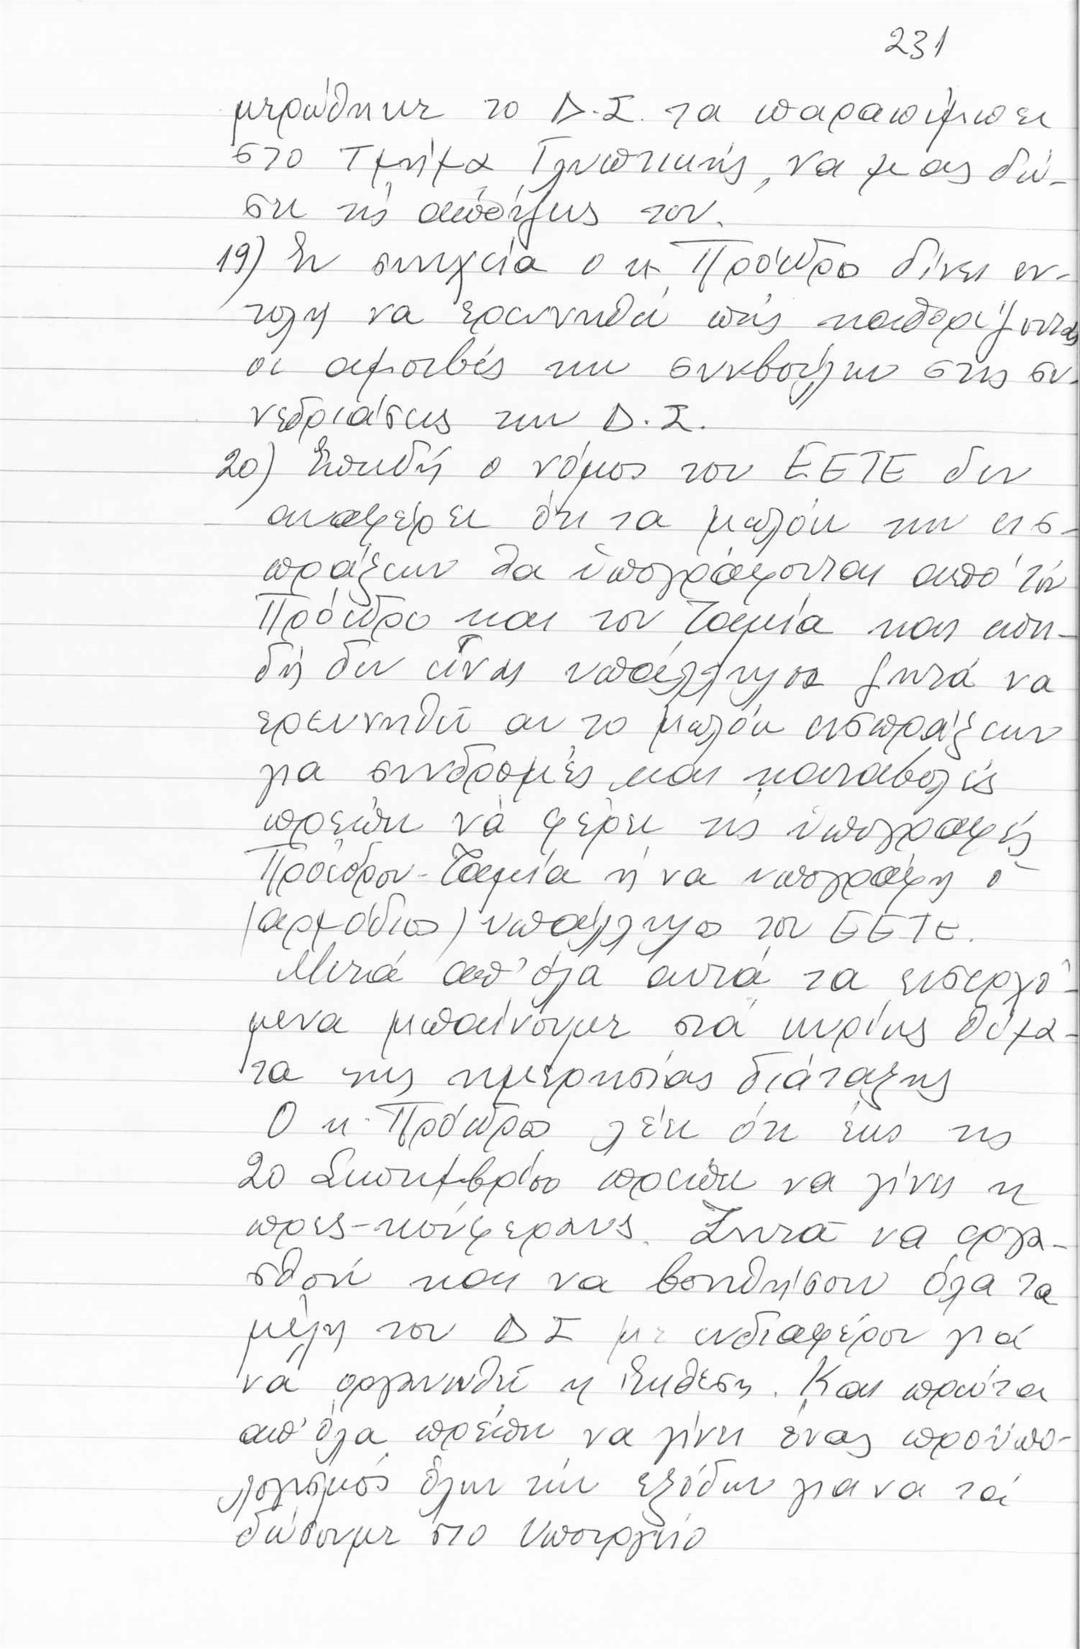 231
μερώθηκε το Δ.Σ. τα παραπέμπει
στο Τμήμα Γλυπτικής, να μας δώ-
σει τις απόψεις του.
19) Εν συνεχεία ο κ. Πρόεδρο δίνει εν-
τολή να ερευνηθεί πώς καθορίζονται
οι αμοιβές των συμβούλων στις συ-
νεδριάσεις των Δ.Σ.
20) Επειδή ο νόμος του ΕΕΤΕ δεν
αναφέρει ότι τα μπλόκ των εισ-
πράξεων θα υπογράφονται από τόν
Πρόεδρο και τον Ταμία και επει-
δή δεν είναι υπάλληλοι ζητά να
ερευνηθεί αν το μπλόκ εισπράξεων
για συνδρομές και καταβολές
πρέπει νά φέρει τις υπογραφές
Προέδρου-Ταμία ή να υπογράφη ο
(αρμόδιος) υπάλληλος του ΕΕΤΕ.
Μετά απ' όλα αυτά τα εισερχό-
μενα μπαίνουμε στά κυρίως θέμα-
τα της ημερησίας διάταξης
Ο κ. Πρόεδρος λέει ότι έως τις
20 Σεπτεμβρίου πρέπει να γίνει η
πρες-κόνφερανς. Ζητά να εργα-
σθούν και να βοηθήσουν όλα τα
μέλη του ΔΣ με ενδιαφέρον γιά
νά οργανωθεί η Έκθεση. Και πρώτα
απ' όλα πρέπει να γίνει ένας προϋπο-
λογισμός όλων τών εξόδων για να τά
δώσουμε στο Υπουργείο